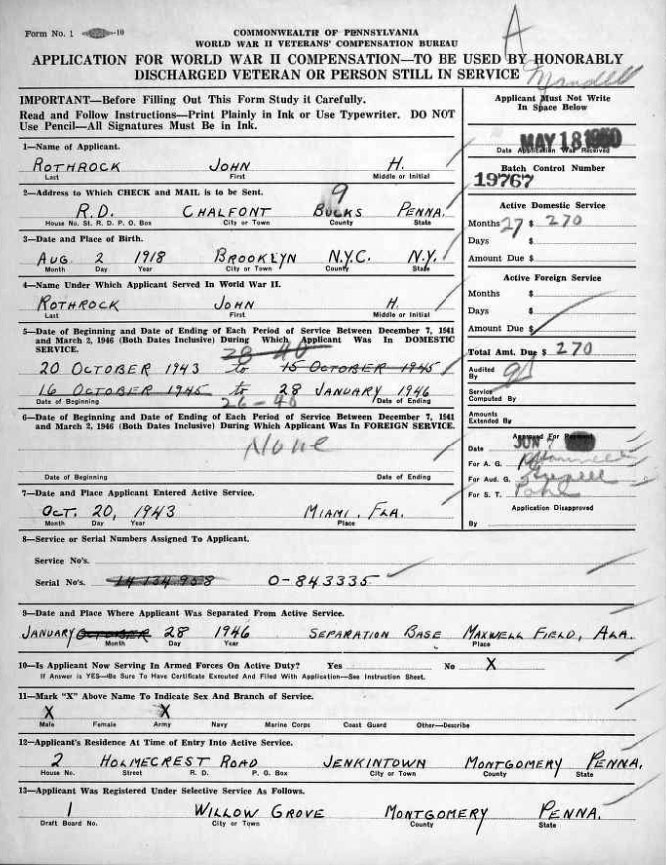 Form No. 1
COMMONWEALTH OF PENNSYLVANIA
WORLD WAR II VETERANS' COMPENSATION BUREAU
APPLICATION FOR WORLD WAR II COMPENSATION—TO BE USED BY HONORABLY
DISCHARGED VETERAN OR PERSON STILL IN SERVICE
A
IMPORTANT—Before Filling Out This Form Study it Carefully.
Read and Follow Instructions—Print Plainly in Ink or Use Typewriter. DO NOT
Use Pencil—All Signatures Must Be in Ink.
Applicant Must Not Write
In Space Below
MAY 18 1950
Date Application Was Received
Batch Control Number
19767
Active Domestic Service
Months 27 $ 270
Days $
Amount Due $
Active Foreign Service
Months $
Days $
Amount Due $
Total Amt. Due $ 270
Audited
By
Service
Computed By
Amounts
Extended By
Approved For Payment
Date JUN 7
For A. G.
For Aud. G.
For S. T.
Application Disapproved
By
1—Name of Applicant.
ROTHROCK JOHN H.
Last First Middle or Initial
2—Address to Which CHECK and MAIL is to be Sent.
9
R.D. CHALFONT BUCKS PENNA.
House No. St. R. D. P. O. Box City or Town County State
3—Date and Place of Birth.
AUG. 2 1918 BROOKLYN N.Y.C. N.Y.
Month Day Year City or Town County State
4—Name Under Which Applicant Served In World War II.
ROTHROCK JOHN H.
Last First Middle or Initial
5—Date of Beginning and Date of Ending of Each Period of Service Between December 7, 1941
and March 2, 1946 (Both Dates Inclusive) During Which Applicant Was In DOMESTIC
SERVICE.
20 OCTOBER 1943 to 15 OCTOBER 1945
16 OCTOBER 1945 to 28 JANUARY 1946
Date of Beginning Date of Ending
6—Date of Beginning and Date of Ending of Each Period of Service Between December 7, 1941
and March 2, 1946 (Both Dates Inclusive) During Which Applicant Was In FOREIGN SERVICE.
None
Date of Beginning Date of Ending
7—Date and Place Applicant Entered Active Service.
OCT. 20, 1943 MIAMI, FLA.
Month Day Year Place
8—Service or Serial Numbers Assigned To Applicant.
Service No's.
Serial No's. 14 134 958 O-843335
9—Date and Place Where Applicant Was Separated From Active Service.
JANUARY OCTOBER 28 1946 SEPARATION BASE MAXWELL FIELD, ALA.
Month Day Year Place
10—Is Applicant Now Serving In Armed Forces On Active Duty? Yes No X
If Answer is YES—Be Sure To Have Certificate Executed And Filed With Application—See Instruction Sheet.
11—Mark "X" Above Name To Indicate Sex And Branch of Service.
X X
Male Female Army Navy Marine Corps Coast Guard Other—Describe
12—Applicant's Residence At Time of Entry Into Active Service.
2 HOLMECREST ROAD JENKINTOWN MONTGOMERY PENNA.
House No. Street R. D. P. O. Box City or Town County State
13—Applicant Was Registered Under Selective Service As Follows.
1 WILLOW GROVE MONTGOMERY PENNA.
Draft Board No. City or Town County State